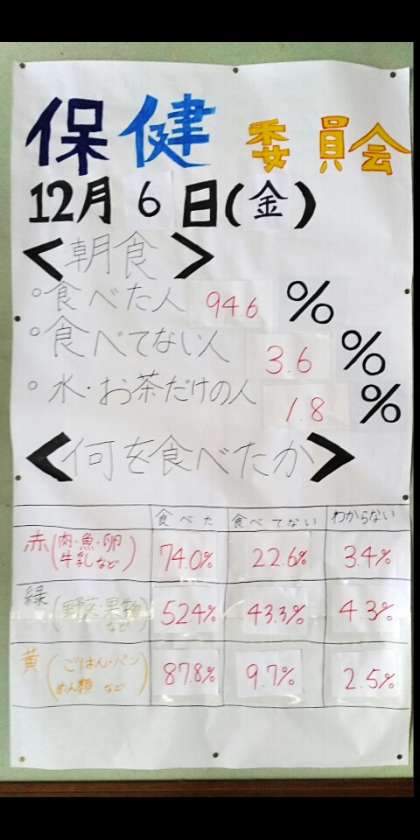 保健 委員会
12月 6 日(金)
<朝食>
°食べた人 94.6 %
°食べてない人 3.6 %
°水・お茶だけの人 1.8 %
<何を食べたか>
食べた 食べてない わからない
赤(肉・魚・卵 牛乳など) 74.0% 22.6% 3.4%
緑(野菜・果物 など) 52.4% 43.3% 4.3%
黄(ごはん・パン めん類 など) 87.8% 9.7% 2.5%